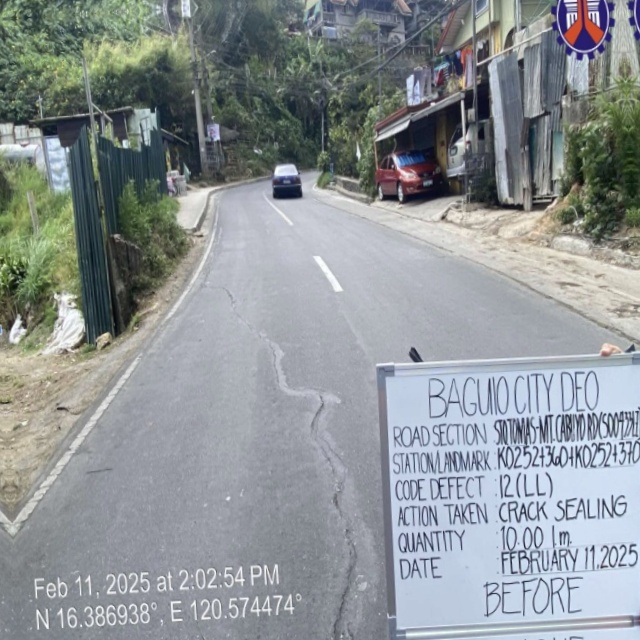 BAGUIO CITY DEO
ROAD SECTION :
STATION/LANDMARK : K0252+360-K0252+370
CODE DEFECT : 12 (LL)
ACTION TAKEN : CRACK SEALING
QUANTITY : 10.00 lm.
DATE : FEBRUARY 11, 2025
BEFORE
Feb 11, 2025 at 2:02:54 PM
N 16.386938°, E 120.574474°